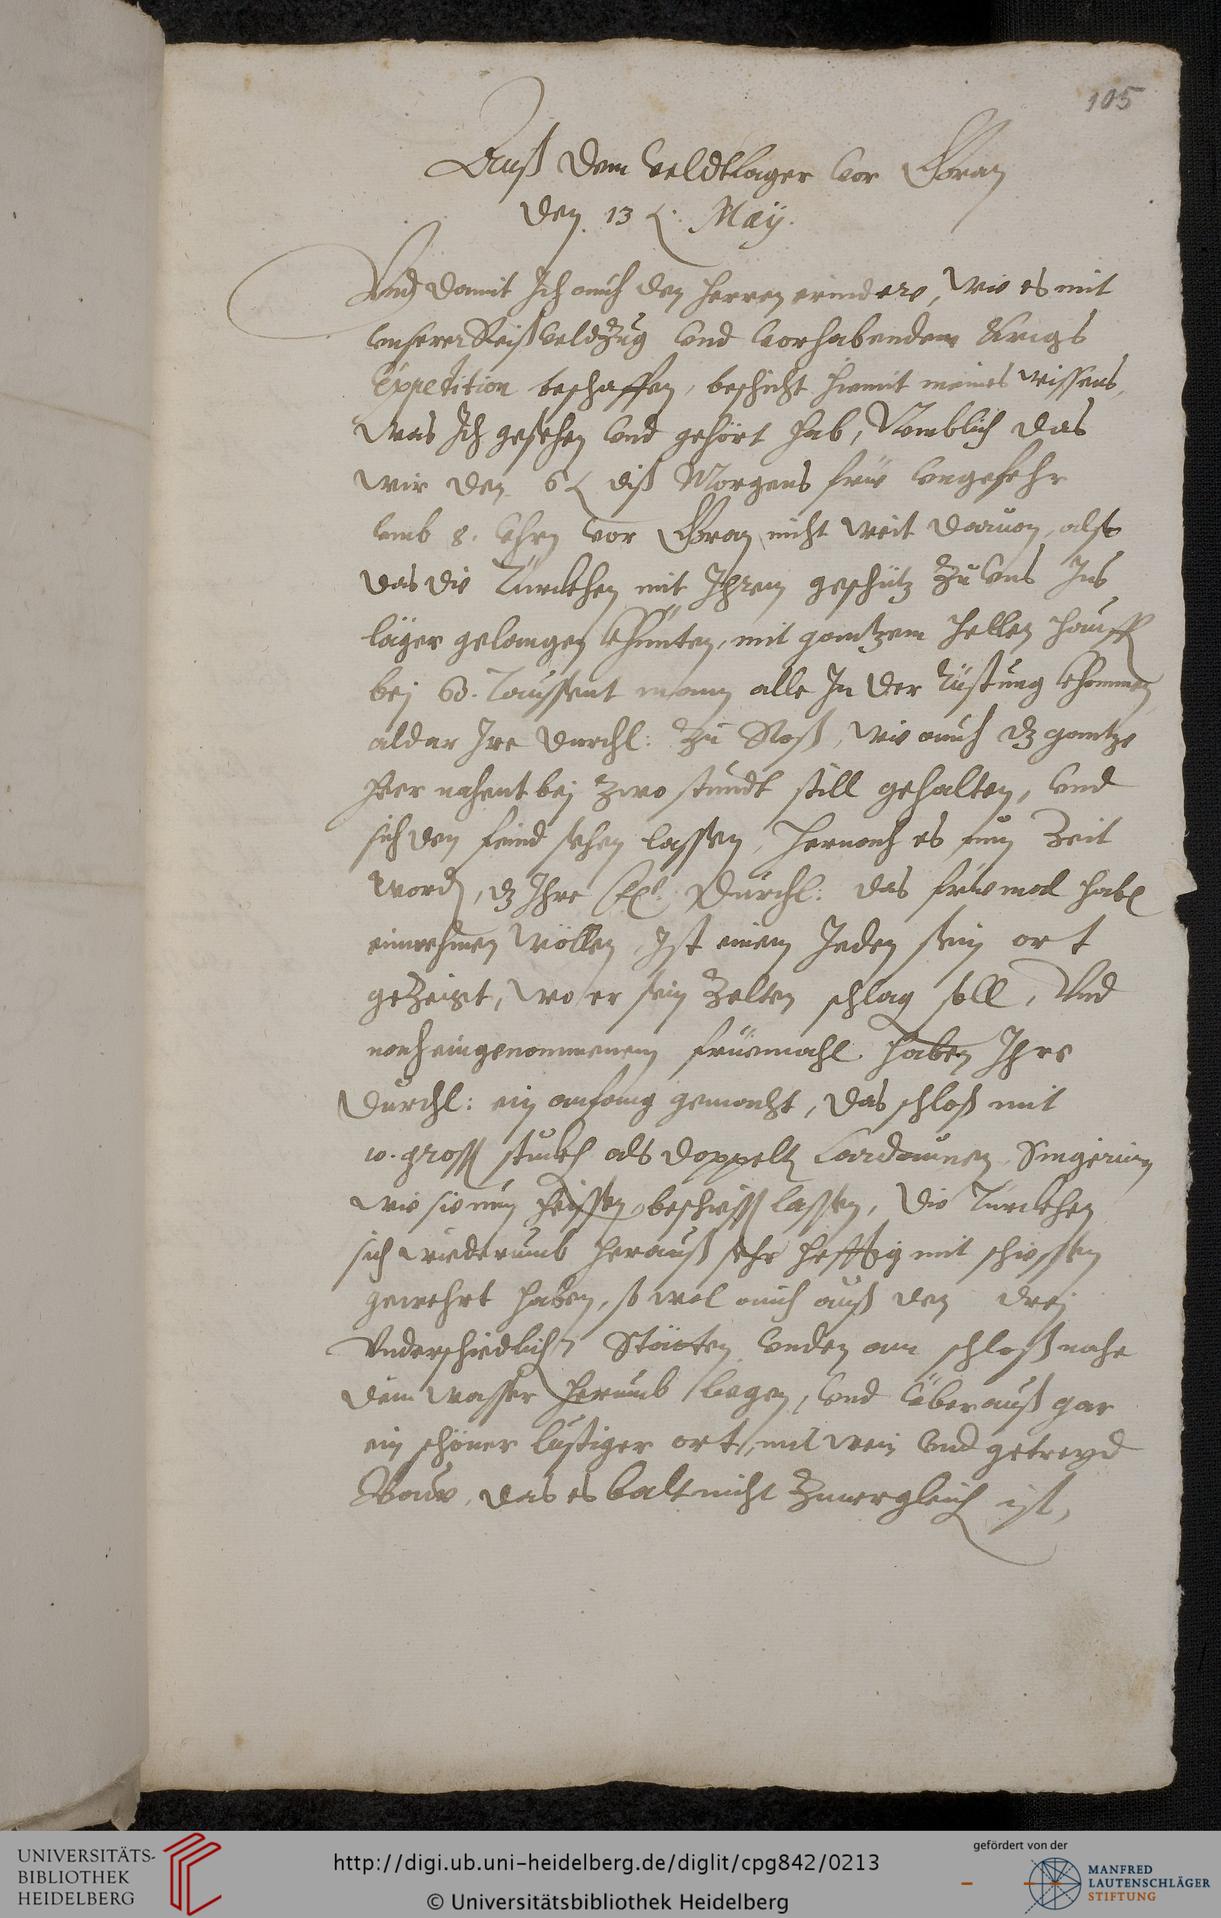 105
Auß dem Veldtlager vor Gran
den 13 May.
Vnd damit Ich auch den herren erindere, wie es mit
vnserer Reiß veldtzug vnd vorhabendem Kriegs
Expedition beschaffen, beschicht hiemit meines wissens,
was Ich gesehen vnd gehört hab, Nemblich das
wir den 6 diß Morgens früe vngefehr
vmb 8. Vhrn vor Gran nicht weit daruon, also
das die Türckhen mit Ihrem geschütz zu vns Ins
läger gelangen khünten, mit gantzem hellen hauff
bej 60. Taussent mann alle In der Rüstung khommen
aldar Ire Durchl: zu Roß, wie auch dz gantze
heer nahent bej zwo stundt still gehalten, vnd
sich den feind sehen lassen, hernach es nun Zeit
word, dz Ihre Durchl: das früemal habe
einnehmen wöllen, Ist einem Jeden sein ort
gezeigt, wo er sein zelten schlag soll, Vnd
nach eingenommenem früemahl haben Ihre
Durchl: ein anfang gemacht, das schloß mit
10. gross stuckh als doppelt Cardaunen, Singerin
wie sie nun heissen, beschiess lassen, die Türckhen
sich wiederumb herauß sehr hefftig mit schiessen
gewehrt haben, so wol auch auß den drej
Vnderschiedlich Stätten vnden am schloß nahe
dem wasser herumb ligen, vnd überauß gar
ein schöner lustiger ort, mit wein vnd getreyd
Bauw, das es balt nicht Zuuergleich ist,
UNIVERSITÄTS-
BIBLIOTHEK
HEIDELBERG
http://digi.ub.uni-heidelberg.de/diglit/cpg842/0213
© Universitätsbibliothek Heidelberg
gefördert von der
MANFRED
LAUTENSCHLÄGER
STIFTUNG